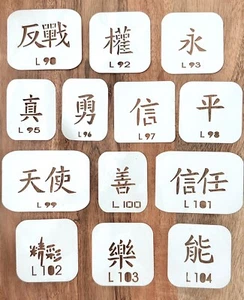 反戰
L 90
權
L 92
永
L 93
真
L 95
勇
L 96
信
L 97
平
L 98
天使
L 99
善
L 100
信任
L 101
精彩
L 102
樂
L 103
能
L 104